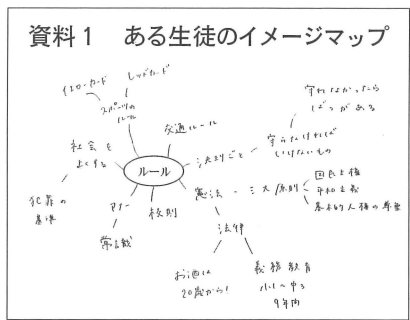 資料1　ある生徒のイメージマップ
イエローカード
レッドカード
スポーツの
ルール
交通ルール
守れなかったら
ばつがある
社会を
よくする
決まりごと
守らなければ
いけないもの
ルール
犯罪の
基準
マナー
常識
校則
憲法
三大原則
国民主権
平和主義
基本的人権の尊重
法律
お酒は
20歳から!
義務教育
小1〜中3
9年間